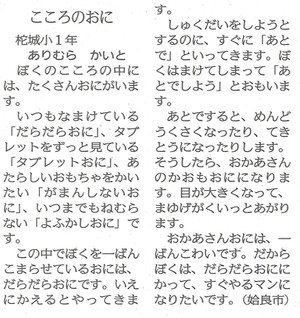 こころのおに
柁城小1年
ありむら　かいと
ぼくのこころの中に
は、たくさんおにがいま
す。
いつもなまけている
「だらだらおに」、タブ
レットをずっと見ている
「タブレットおに」、あ
たらしいおもちゃをかい
たい「がまんしないお
に」、いつまでもねむら
ない「よふかしおに」で
す。
この中でぼくを一ばん
こまらせているおには、
だらだらおにです。いえ
にかえるとやってきま
す。
しゅくだいをしようと
するのに、すぐに「あと
で」といってきます。ぼ
くはまけてしまって「あ
とでしよう」とおもいま
す。
あとですると、めんど
うくさくなったり、てき
とうになったりします。
そうしたら、おかあさん
のかおもおにになりま
す。目が大きくなって、
まゆげがくいっとあがり
ます。
おかあさんおには、一
ばんこわいです。だから
ぼくは、だらだらおにに
かって、すぐやるマンに
なりたいです。（姶良市）